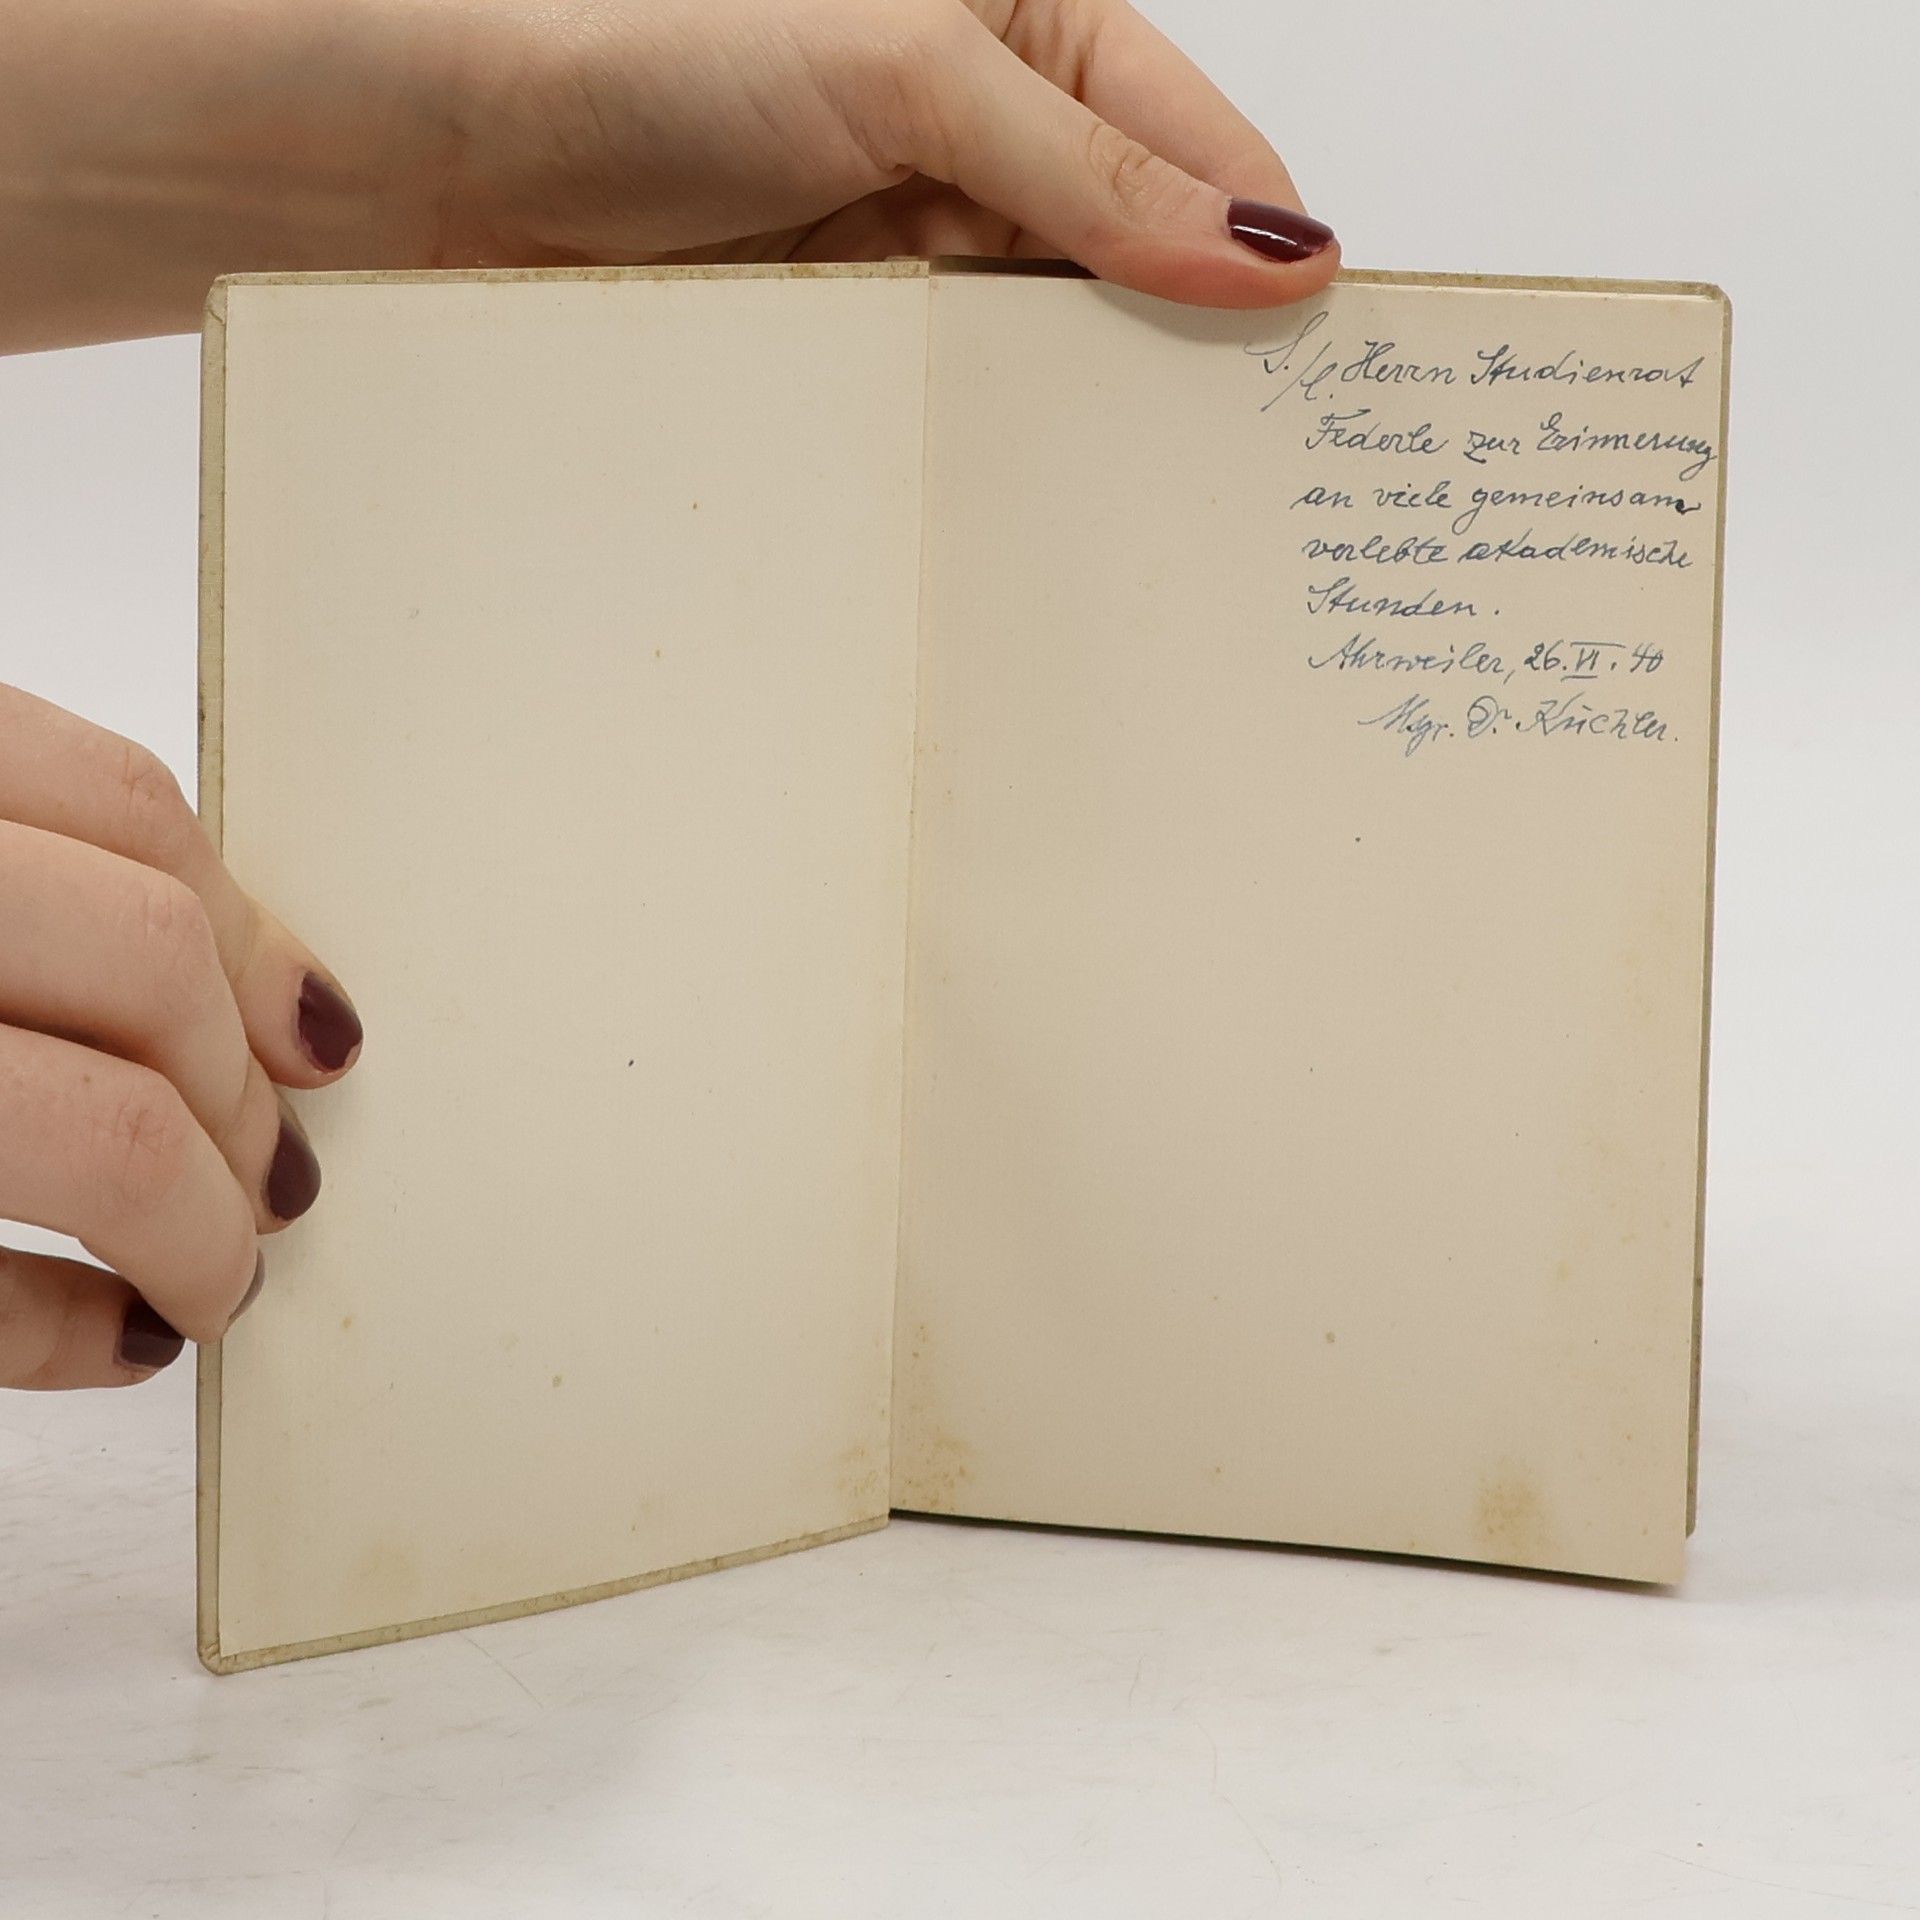 S./l. Herrn Studienrat
Federle zur Erinnerung
an viele gemeinsam
verlebte akademische
Stunden.
Ahrweiler, 26.VI.40
Mgr. Dr Küchler.